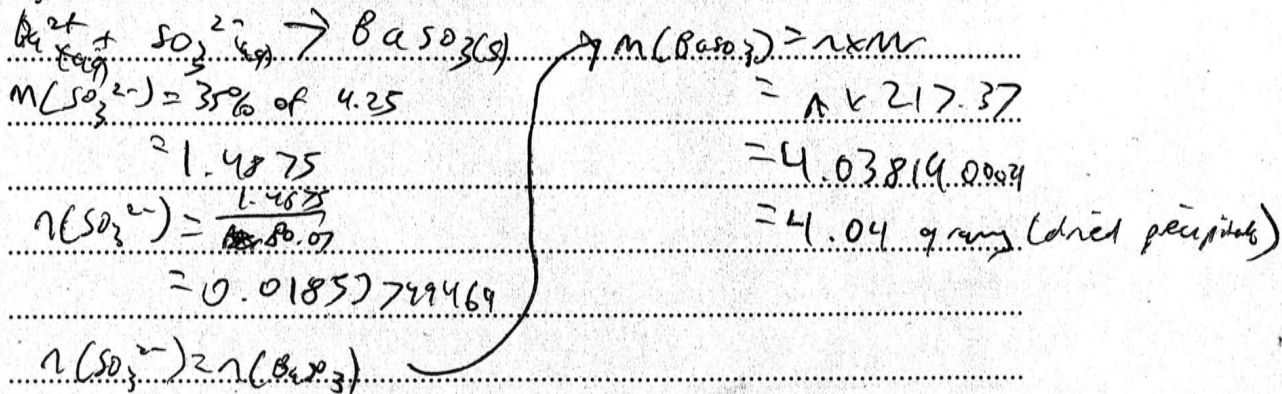 Ba²⁺(aq) + SO₃²⁻(aq) → BaSO₃(s)
m(SO₃²⁻) = 35% of 4.25
= 1.4875
n(SO₃²⁻) = 1.4875 / 80.07
= 0.01857749469
n(SO₃²⁻) = n(BaSO₃)
m(BaSO₃) = n×M
= n × 217.37
= 4.038190021
= 4.04 grams (dried precipitate)